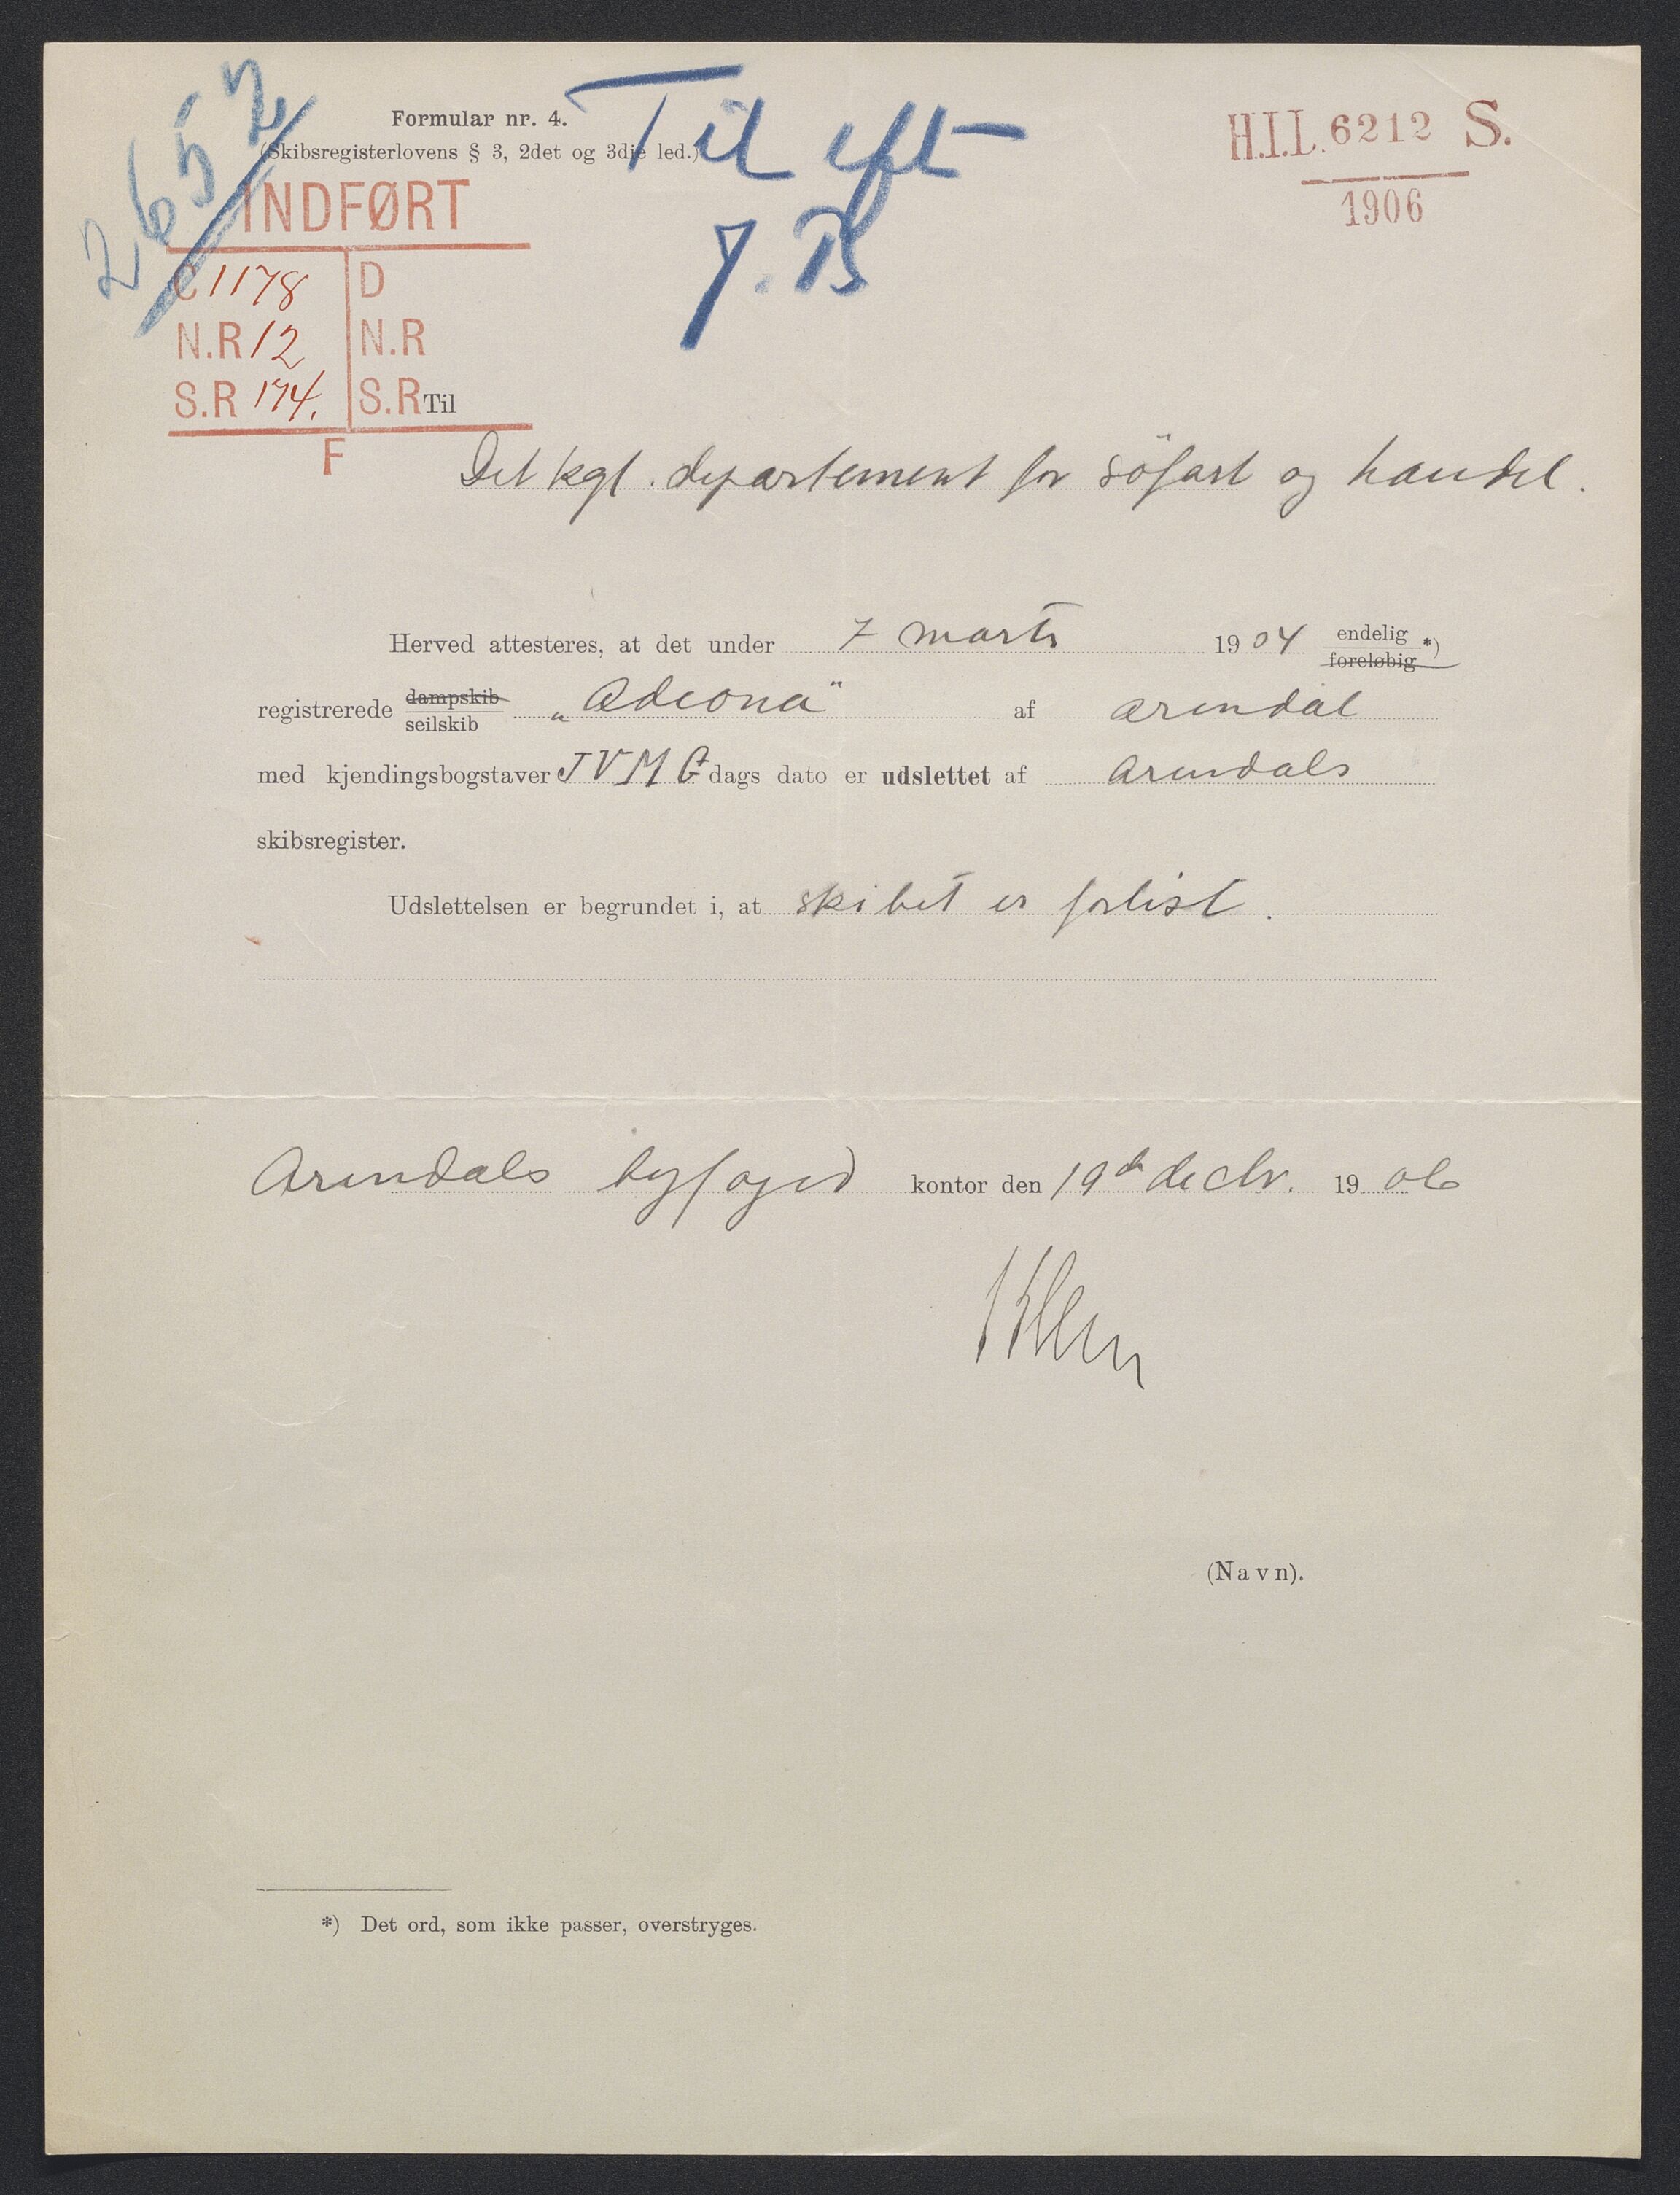 2652
Formular nr. 4.
(Skibsregisterlovens § 3, 2det og 3die led.)
Til eft
J. B
H.I.L. 6212 S.
1906
INDFØRT
C 1178 D
N.R 12 N.R
S.R 174. S.R
F
Til
Det kgl. departement for söfart og handel.
Herved attesteres, at det under 7 marts 1904 endelig *)
foreløbig
registrerede dampskib „Adeona" af Arendal
seilskib
med kjendingsbogstaver JVMG dags dato er udslettet af Arendals
skibsregister.
Udslettelsen er begrundet i, at skibet er forlist.
Arendals byfoged kontor den 19de decbr. 1906
(Navn).
*) Det ord, som ikke passer, overstryges.